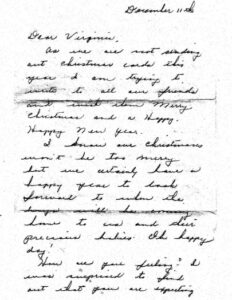 December 11th
Dear Virginia,
As we are not sending
out Christmas cards this
year I am trying to
write to all our friends
and wish them Merry
Christmas and a Happy,
Happy New Year.
I know our Christmases
won't be too merry
but we certainly have a
happy year to look
forward to when the
boys will be coming
home to us and their
precious babies. Oh happy
day!
How are you feeling? I
was surprised to find
out that you are expecting